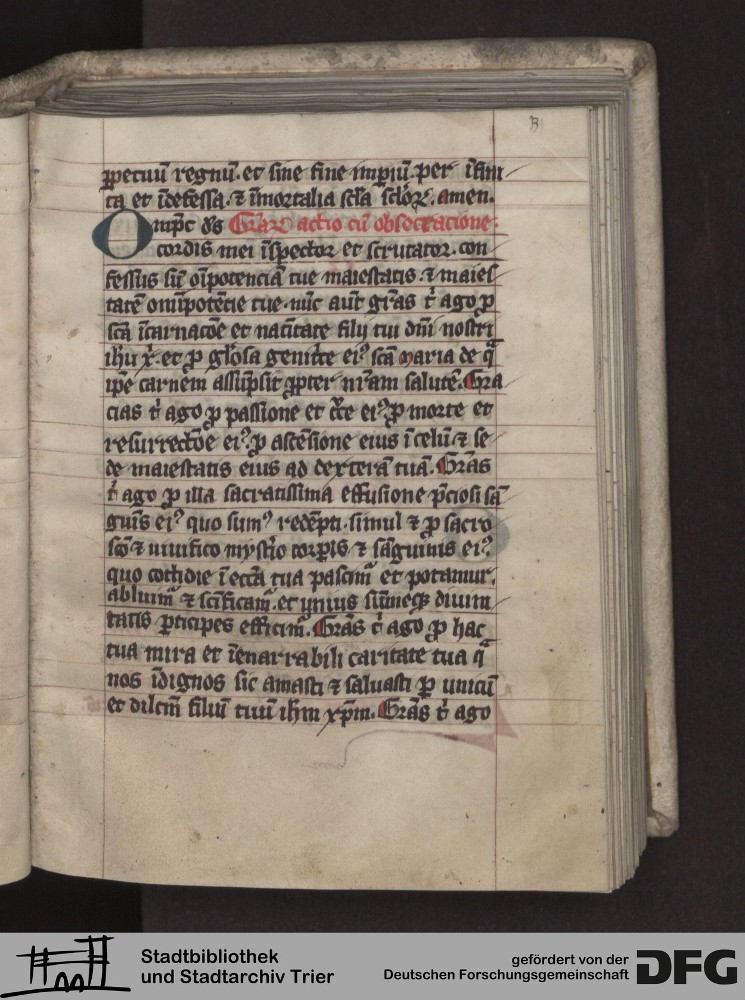 B
ꝑpetuū regnū. et sine fine impiū. per īfini
ta et īdefessa. ⁊ īmortalia scl̄a sclōꝝ. amen.
Omp̄c ds̄ Gr̄aꝝ actio cū obsecracione.
cordis mei īspector et scrutator. con
fessus sū oīpotenciā tue maiestatis. ⁊ maies
tatē omīpotētie tue. nūc aut̄ gr̄as t̄ ago ꝓ
scā īcarnacōe et natītate filij tui dn̄i nostri
ihū x̄. et ꝓ gl̄osa genit̄ce eiꝰ scā maria de q̄
ip̄e carnem assūpsit ꝓpter nr̄am salutē. Gra
cias t̄ ago ꝓ passione et cc̄e eiꝰ. ꝓ morte et
resurrectōe eiꝰ. ꝓ ascēsione eius ī celū ⁊ se
de maiestatis eius ad dexterā tuā. Gr̄as
t̄ ago ꝓ illa sacratissima effusione p̄ciosi sā
guīs eiꝰ quo sumꝰ redēpti. simul ⁊ ꝓ sacro
scō ⁊ viuifico myst̄io corꝑis ⁊ sāguinis eiꝰ.
quo cothidie ī ecc̄a tua pascimᷓ et potamur.
abluimᷓ ⁊ scīficamᷓ. et vnius sūmeqꝫ diuini
tatis ꝑticipes efficimᷓ. Gr̄as t̄ ago ꝓ hac
tua mira et īenarrabili caritate tua q̄
nos īdignos sic amasti ⁊ saluasti ꝑ vnicū
et dilcm̄ filiū tuū ihm̄ xp̄m. Gr̄as t̄ ago
Stadtbibliothek
und Stadtarchiv Trier
gefördert von der
Deutschen Forschungsgemeinschaft
DFG